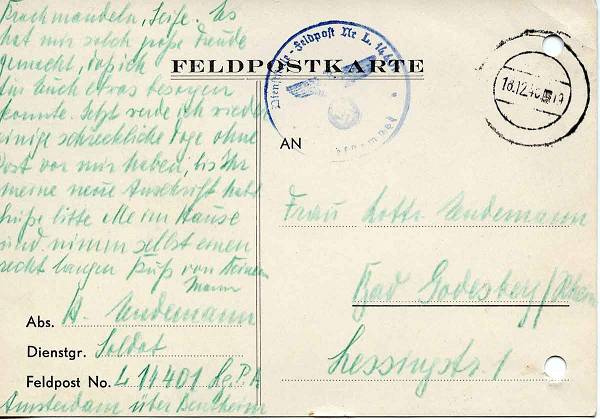 Krachmandeln, Seife. Es
hat mir solch große Freude
gemacht, daß ich
Dir auch etwas besorgen
konnte. Jetzt werde ich wieder
einige schreckliche Tage ohne
Post vor mir haben, bis Ihr
meine neue Anschrift habt.
Grüße bitte alle im Hause
und nimm selbst einen
recht langen Kuß von Deinem
Mann
Abs. A. Undemann
Dienstgr. Soldat
Feldpost No. L 11401 Lg.P.A
Amsterdam über Bentheim
FELDPOSTKARTE
Feldpost Nr L.
18.12.40
AN
Frau Lotte Undemann
Bad Godesberg/Rhein
Lessingstr. 1